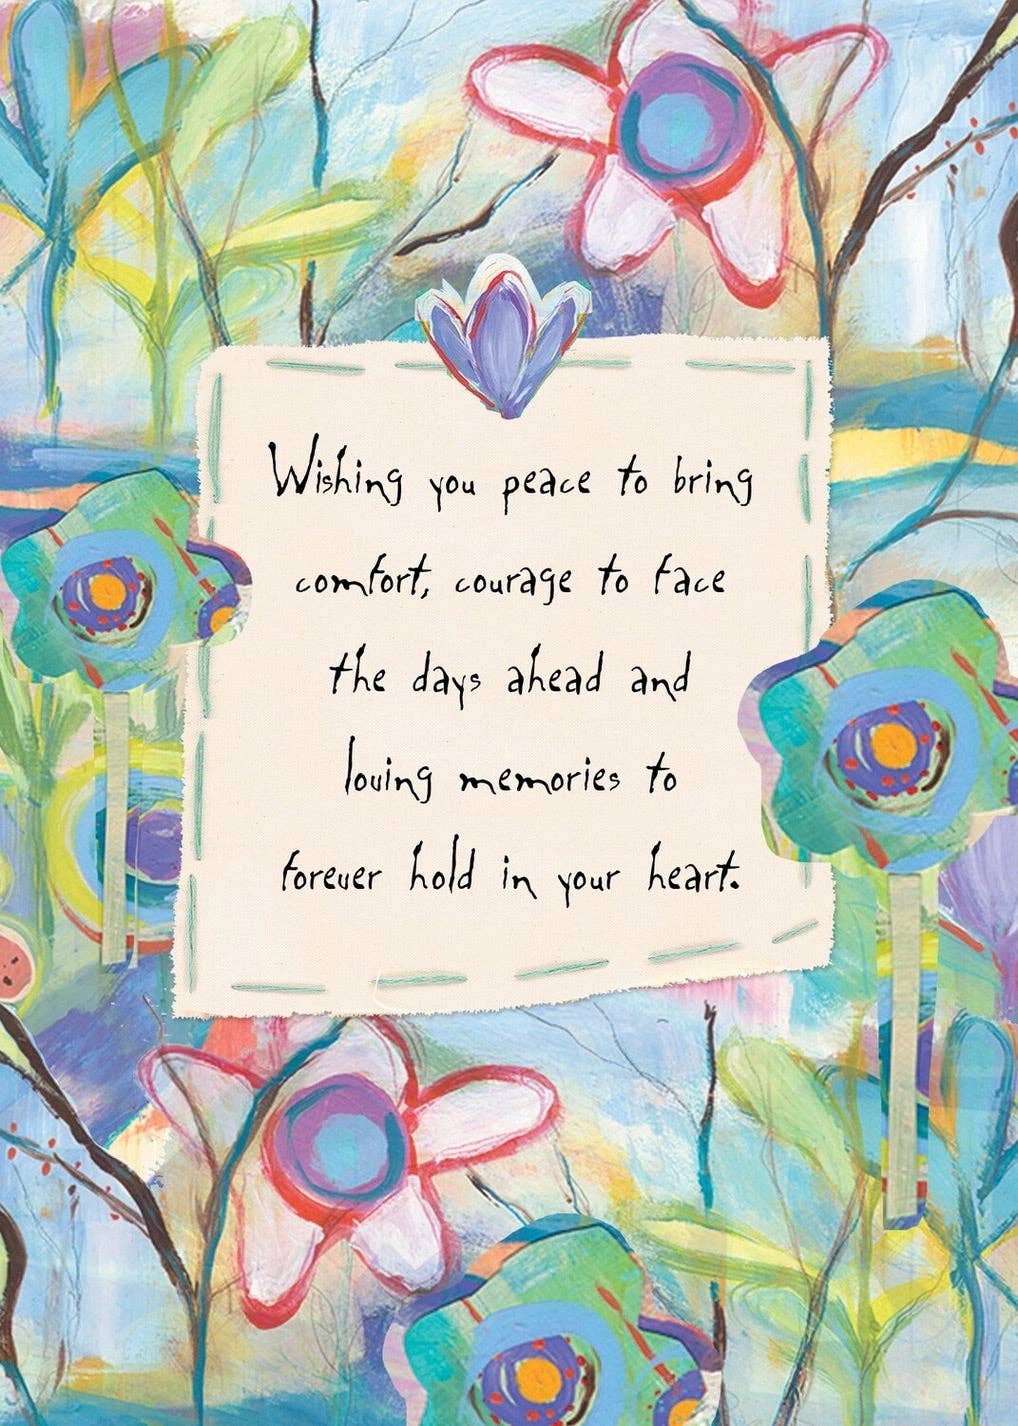 Wishing you peace to bring
comfort, courage to face
the days ahead and
loving memories to
forever hold in your heart.